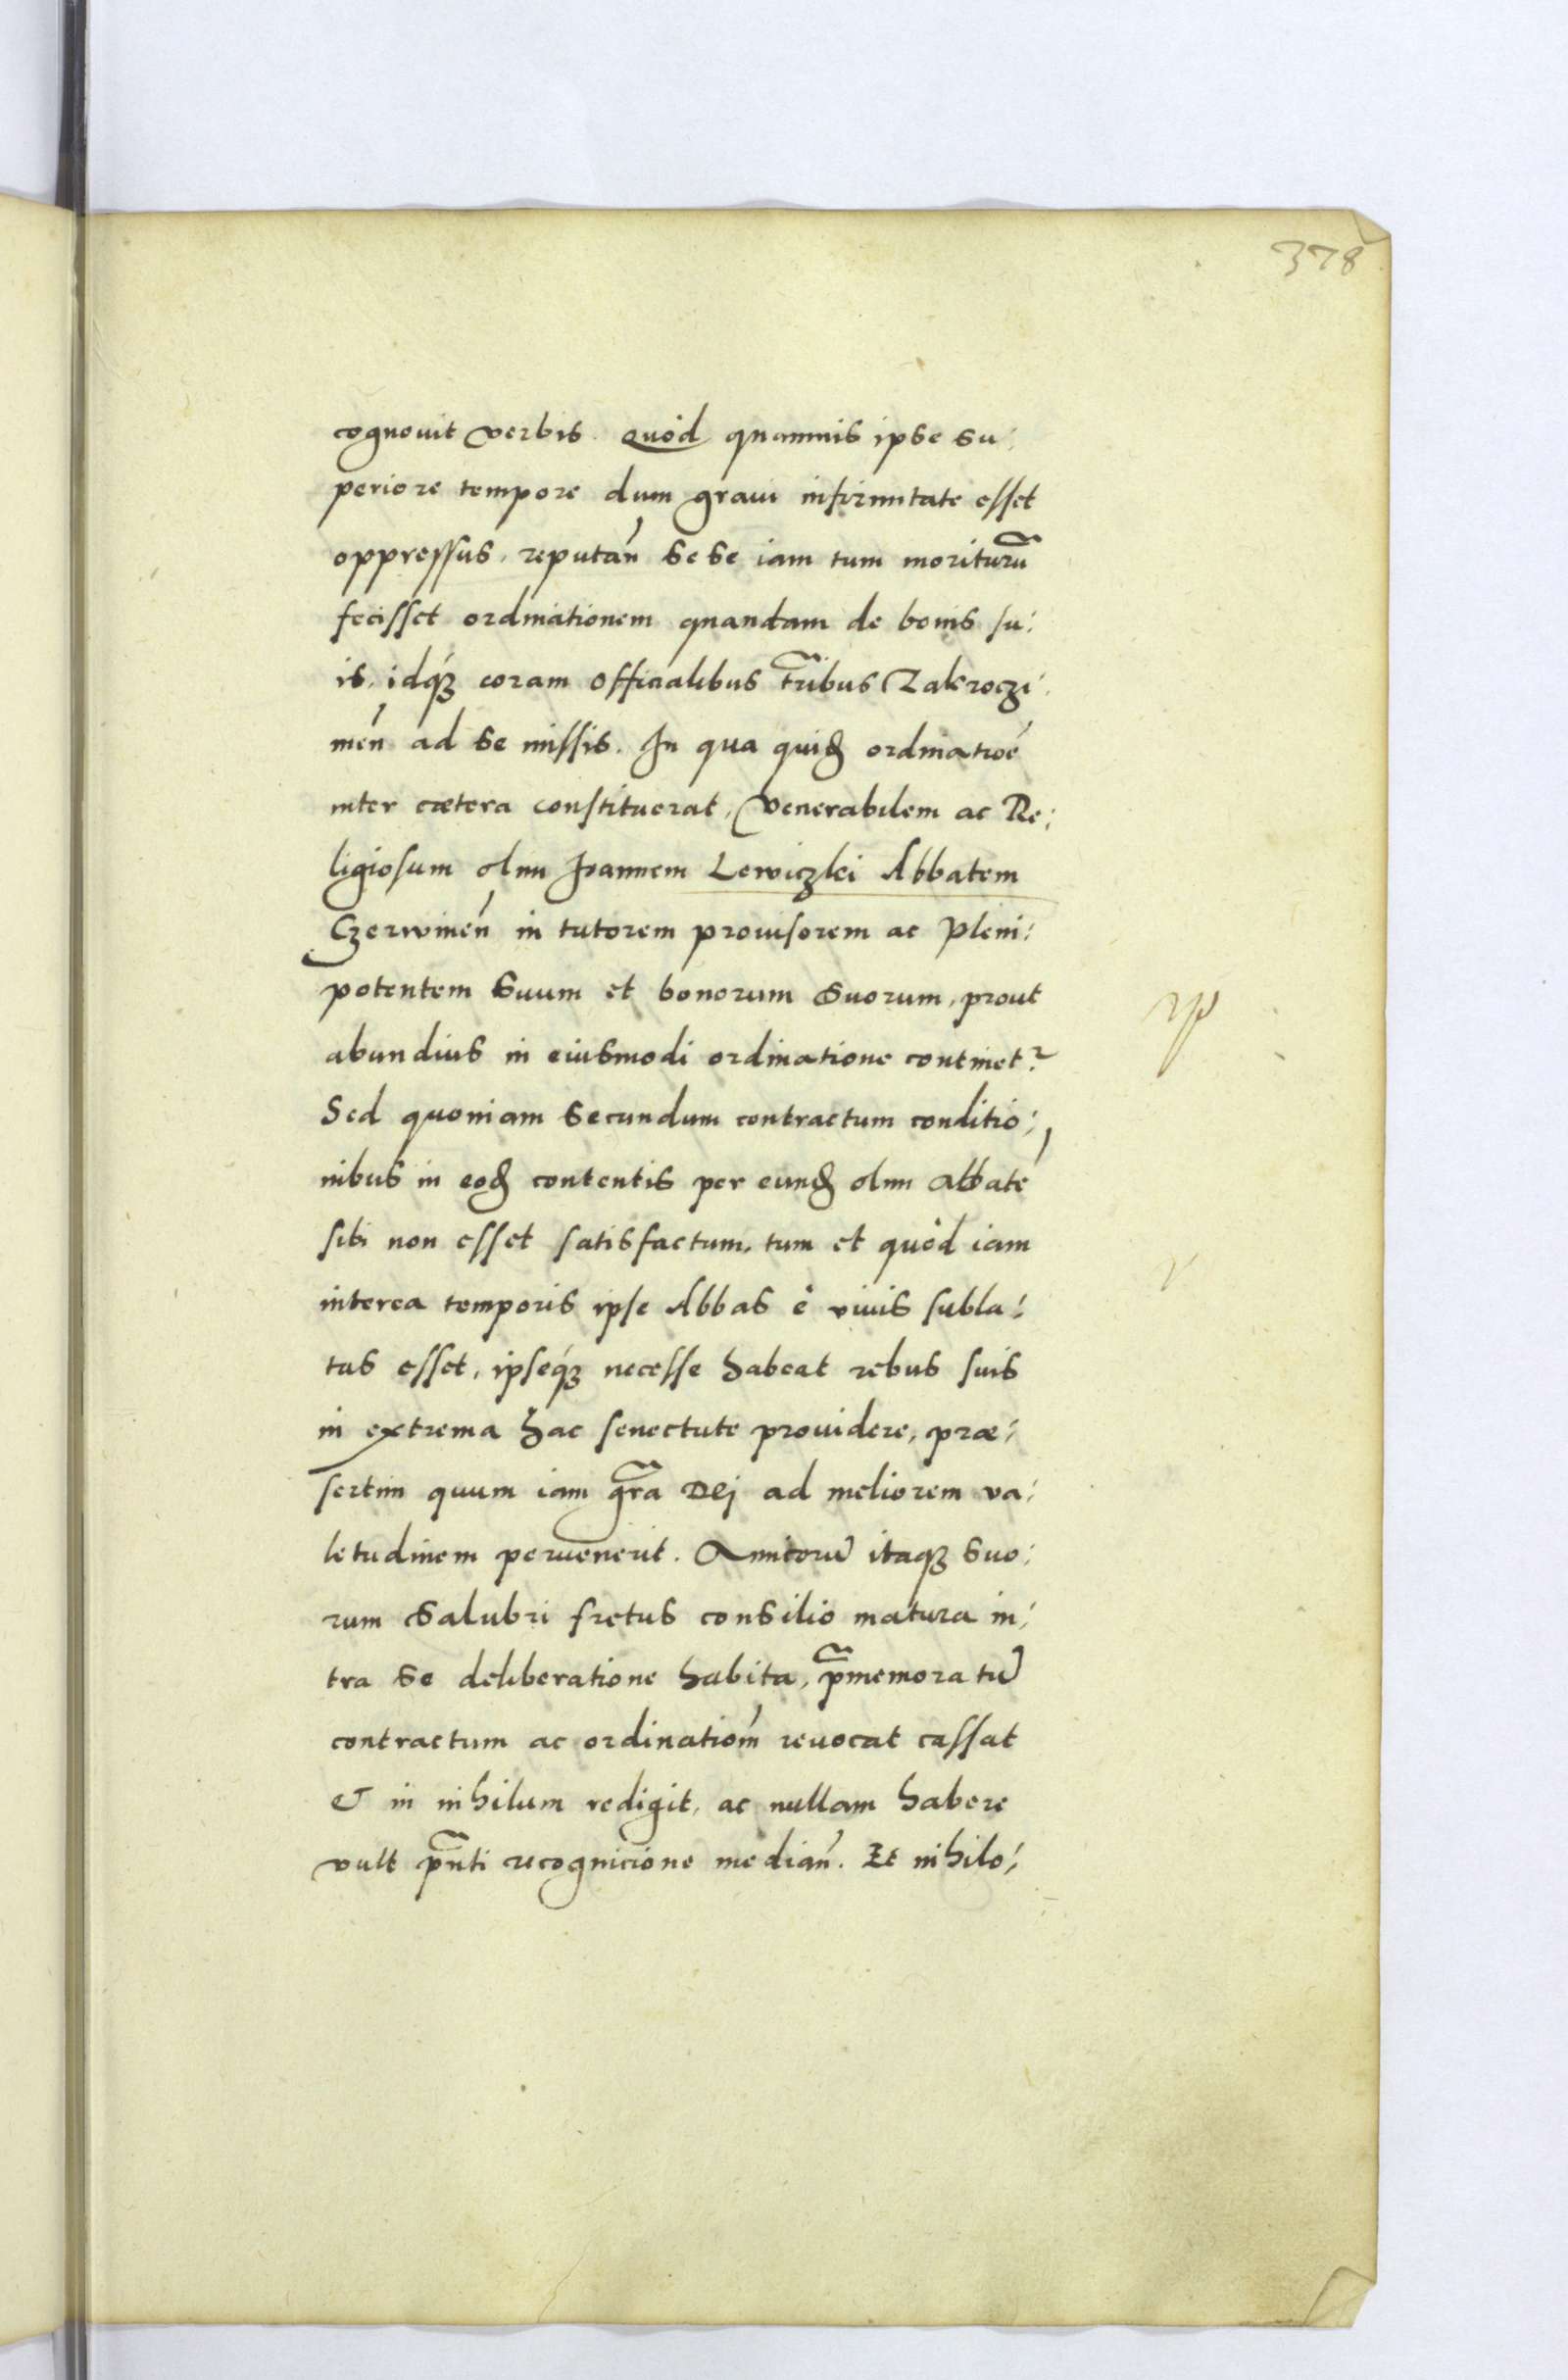 378
cognouit verbis. Quòd quamuis ipse su:
periore tempore dum graui infirmitate esset
oppressus, reputań sese iam tum moriturũ
fecisset ordinationem quandam de bonis su:
is, idq́ꝫ coram officialibus tr̃ibus Zakroczi:
meń ad se missis. In qua quidẽ ordinatioé
inter cætera constituerat, Venerabilem ac Re:
ligiosum olim Joannem Lewiczki Abbatem
Czerwineń in tutorem prouisorem ac Pleni:
potentem suum et bonorum suorum, prout
abundius in eiusmodi ordinatione continet᷑
Sed quoniam secundum contractum conditio:
nibus in eodẽ contentis per eundẽ olim abbaté
sibi non esset satisfactum, tum et quòd iam
interea temporis ipse Abbas è viuis subla:
tus esset, ipseq́ꝫ necesse habeat rebus suis
in extrema hac senectute prouidere, præ:
sertim quum iam gr̃a Dei ad meliorem va:
letudinem peruenerit. Amicorũ itaqꝫ suo:
rum salubri fretus consilio matura in:
tra se deliberatione habita, p̃memoratũ
contractum ac ordinatiom̃ reuocat cassat
& in nihilum redigit, ac nullam habere
vult p̃nti recognicione median̄. Et nihilo: